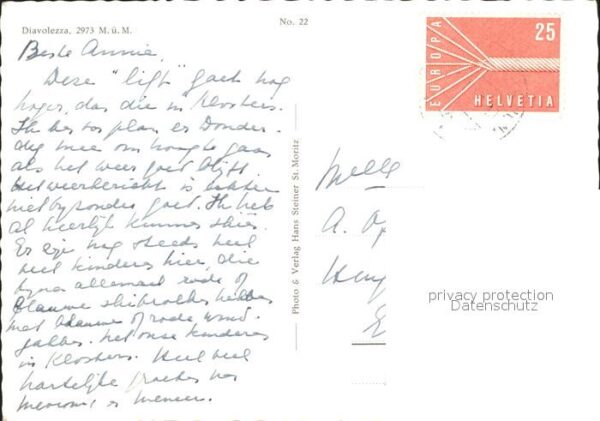 Diavolezza, 2973 M. ü. M.
No. 22
Beste Annie,
Deze "lift" gaat nog
hoger, dan die in Klosters.
Ik ben van plan er Donder-
dag mee omhoog te gaan
als het weer goed blijft
het weerbericht is echter
niet byzonder goed. Ik heb
al heerlijk kunnen skiën.
Er zijn nog steeds heel
veel kinderen hier, die
byna allemaal rode of
blauwe skibroeken hebben
met blauwe of rode wind-
jakken. net onze kinderen
in Klosters. Heel veel
hartelijke groeten van
mevrouw en meneer.
Photo & Verlag Hans Steiner St. Moritz
EUROPA
25
HELVETIA
Melle
A.
privacy protection
Datenschutz